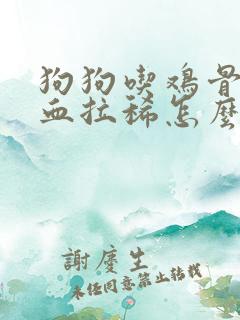 狗狗喫鸡骨
血拉稀怎麽
謝慶生
未经同意禁止转载